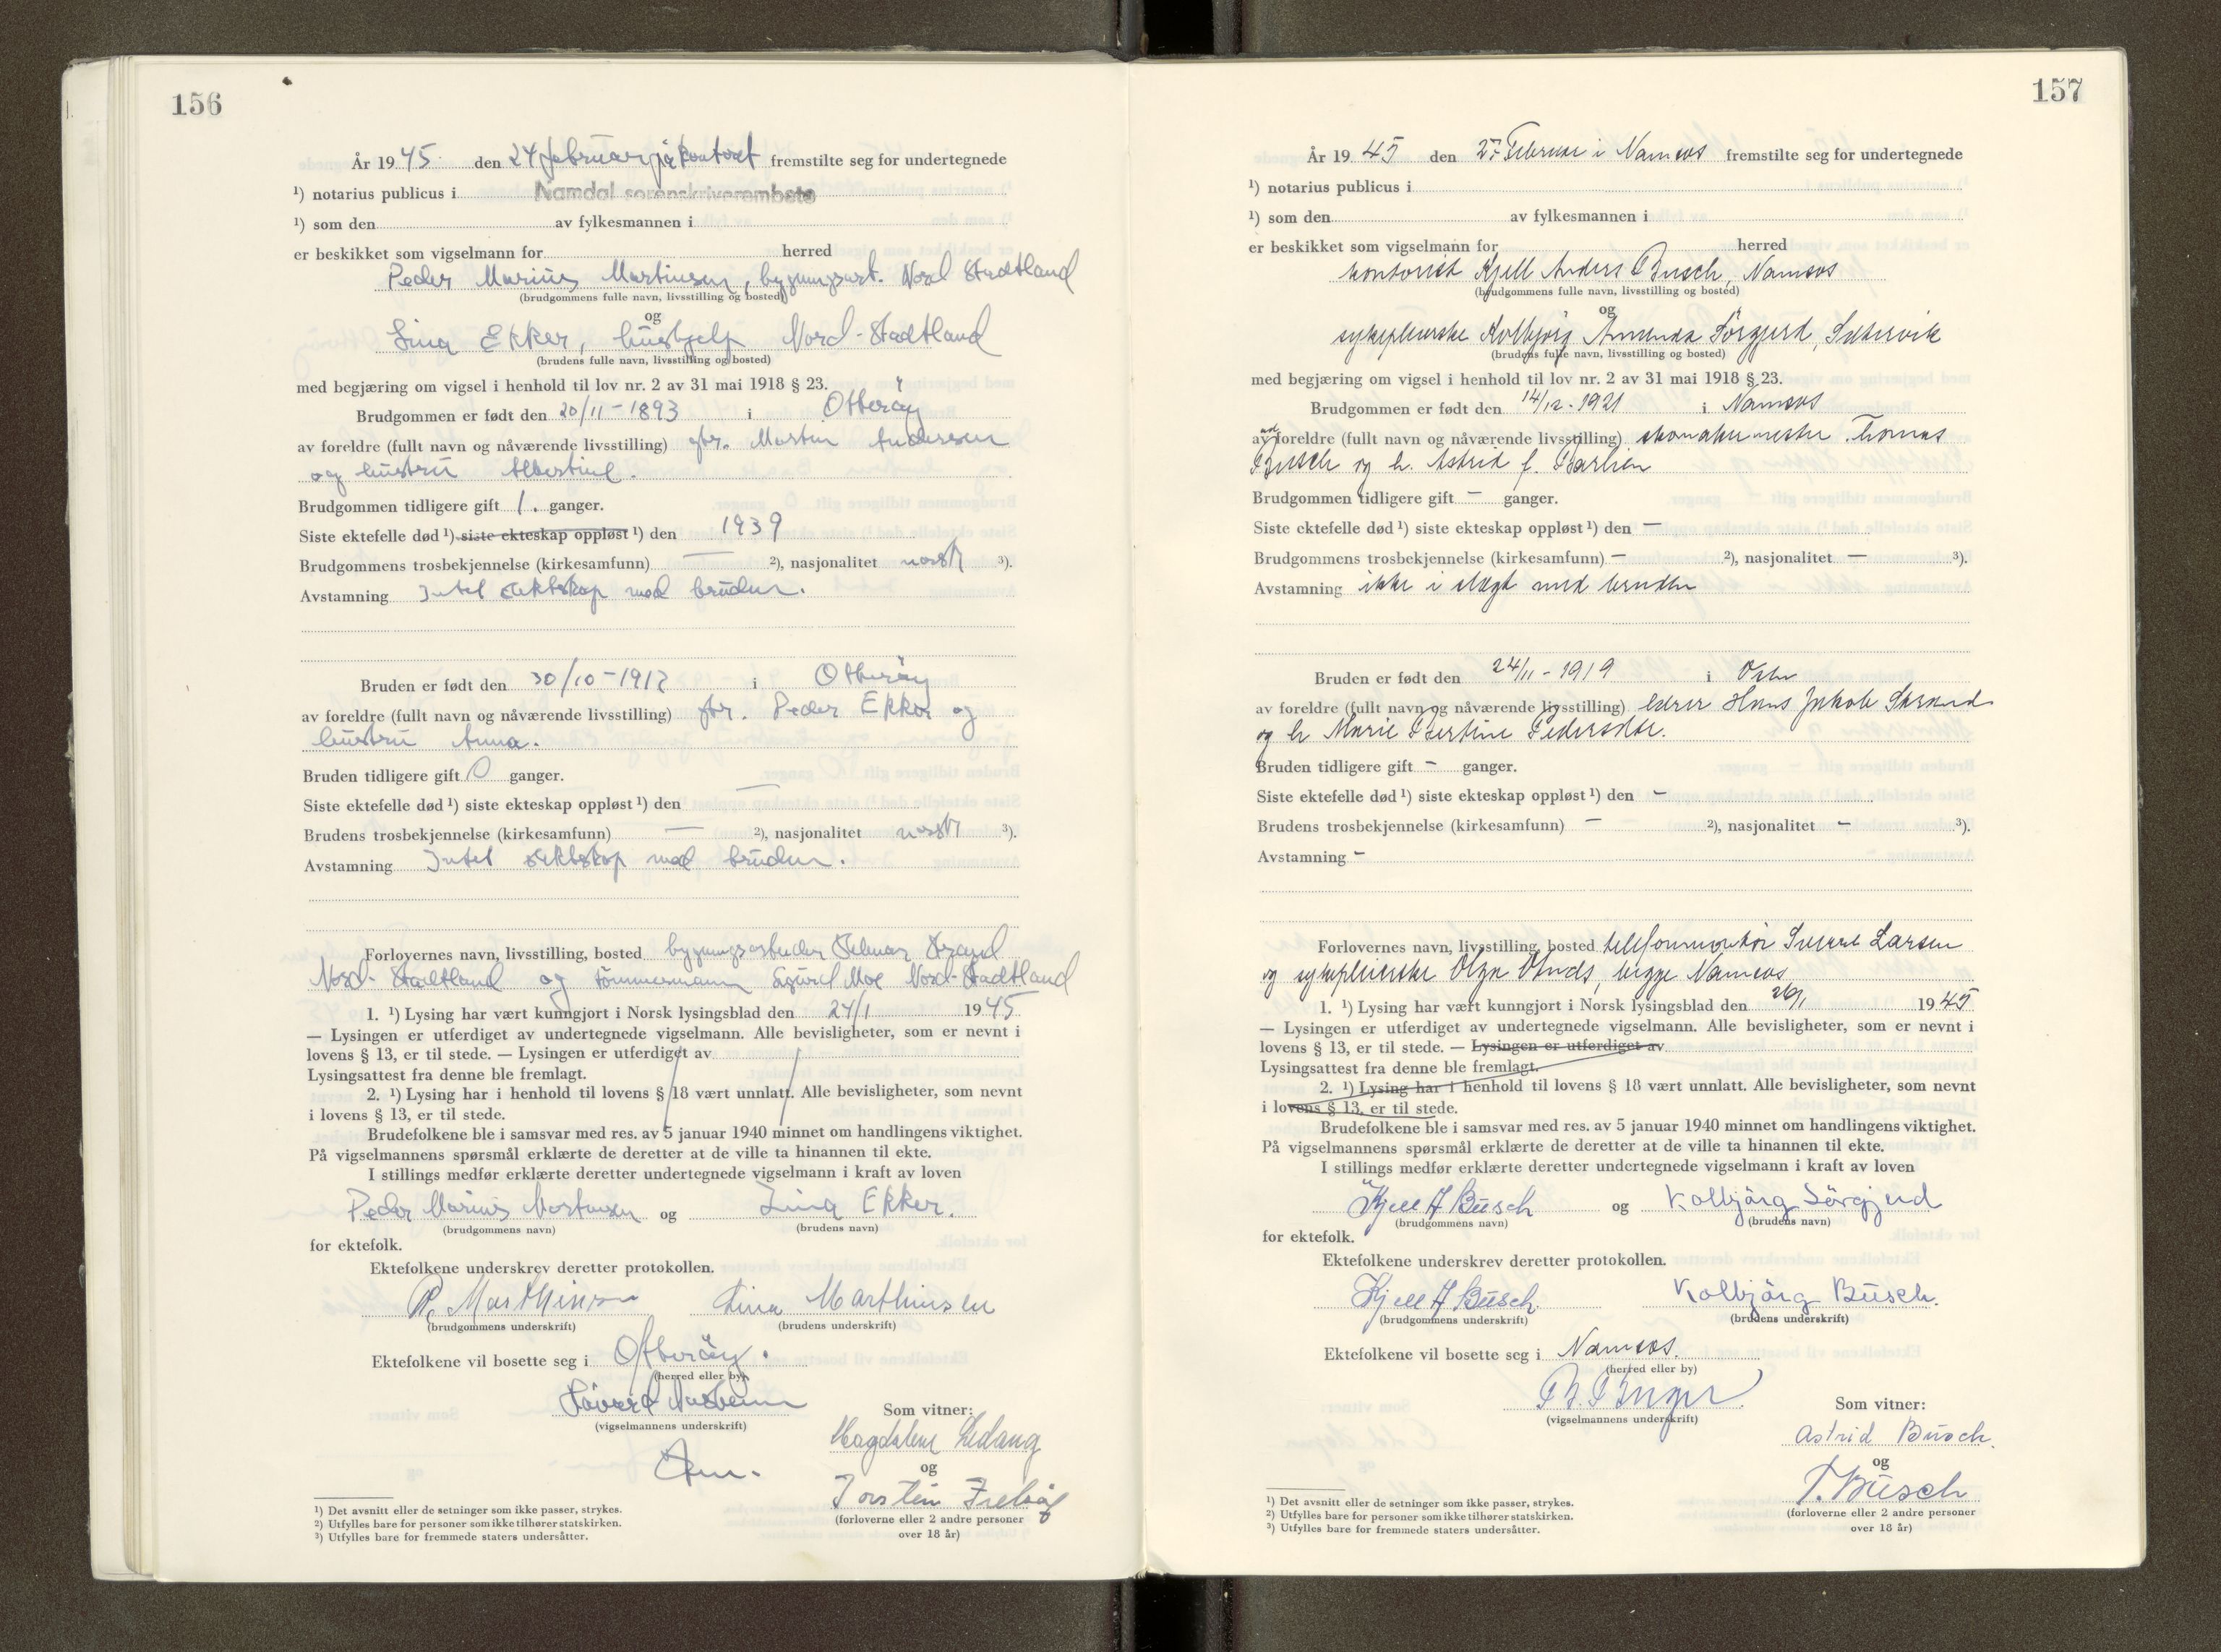 156
År 1945 den 24 februar på kontoret fremstilte seg for undertegnede
¹) notarius publicus i Namdal sorenskriverembete
¹) som den av fylkesmannen i
er beskikket som vigselmann for herred
Peder Marius Martinsen, bygningsarb. Nord Statland
(brudgommens fulle navn, livsstilling og bosted)
og
Lina Ekker, hushjelp Nord-Statland
(brudens fulle navn, livsstilling og bosted)
med begjæring om vigsel i henhold til lov nr. 2 av 31 mai 1918 § 23.
Brudgommen er født den 20/11-1893 i Otterøy
av foreldre (fullt navn og nåværende livsstilling) gbr. Martin Andersen
og hustru Albertine.
Brudgommen tidligere gift 1. ganger.
Siste ektefelle død ¹) siste ekteskap oppløst ¹) den 1939
Brudgommens trosbekjennelse (kirkesamfunn) — ²), nasjonalitet norsk ³).
Avstamning Intet slektskap med bruden.
Bruden er født den 30/10-1912 i Otterøy
av foreldre (fullt navn og nåværende livsstilling) gbr. Peder Ekker og
hustru Anna.
Bruden tidligere gift 0 ganger.
Siste ektefelle død ¹) siste ekteskap oppløst ¹) den —
Brudens trosbekjennelse (kirkesamfunn) — ²), nasjonalitet norsk ³).
Avstamning Intet slektskap med bruden.
Forlovernes navn, livsstilling, bosted bygningsarbeider Strand
Nord-Statland og tømmermann Sigurd Moe Nord-Statland
1. ¹) Lysing har vært kunngjort i Norsk lysingsblad den 24/1 1945
— Lysingen er utferdiget av undertegnede vigselmann. Alle bevisligheter, som er nevnt i
lovens § 13, er til stede. — Lysingen er utferdiget av
Lysingsattest fra denne ble fremlagt.
2. ¹) Lysing har i henhold til lovens § 18 vært unnlatt. Alle bevisligheter, som nevnt
i lovens § 13, er til stede.
Brudefolkene ble i samsvar med res. av 5 januar 1940 minnet om handlingens viktighet.
På vigselmannens spørsmål erklærte de deretter at de ville ta hinannen til ekte.
I stillings medfør erklærte deretter undertegnede vigselmann i kraft av loven
Peder Marius Martinsen og Lina Ekker.
(brudgommens navn) (brudens navn)
for ektefolk.
Ektefolkene underskrev deretter protokollen.
P. Marthinsen Lina Marthinsen
(brudgommens underskrift) (brudens underskrift)
Ektefolkene vil bosette seg i Otterøy.
(herred eller by)
(vigselmannens underskrift)
Som vitner:
Magdalene Ledang
og
Torstein
(forloverne eller 2 andre personer
over 18 år)
¹) Det avsnitt eller de setninger som ikke passer, strykes.
²) Utfylles bare for personer som ikke tilhører statskirken.
³) Utfylles bare for fremmede staters undersåtter.
157
År 1945 den 27. Februar i Namsos fremstilte seg for undertegnede
¹) notarius publicus i
¹) som den av fylkesmannen i
er beskikket som vigselmann for herred
kontorist Kjell Anders Busch, Namsos
(brudgommens fulle navn, livsstilling og bosted)
og
sykepleierske Kolbjørg Amanda Sørgjerd, Sætervik
(brudens fulle navn, livsstilling og bosted)
med begjæring om vigsel i henhold til lov nr. 2 av 31 mai 1918 § 23.
Brudgommen er født den 14/12-1921 i Namsos
av foreldre (fullt navn og nåværende livsstilling) skomakermester Tomas
Busch og h. Astrid f. Barlien
Brudgommen tidligere gift — ganger.
Siste ektefelle død ¹) siste ekteskap oppløst ¹) den —
Brudgommens trosbekjennelse (kirkesamfunn) — ²), nasjonalitet — ³).
Avstamning ikke i slægt med bruden
Bruden er født den 24/11-1919 i Osen
av foreldre (fullt navn og nåværende livsstilling) lærer Hans Jakob Strand
og h Marie Bertine Pedersdtr.
Bruden tidligere gift - ganger.
Siste ektefelle død ¹) siste ekteskap oppløst ¹) den -
Brudens trosbekjennelse (kirkesamfunn) — ²), nasjonalitet - ³).
Avstamning -
Forlovernes navn, livsstilling, bosted telefonmontør Sverre Larsen
og sykepleierske Olga begge Namsos
1. ¹) Lysing har vært kunngjort i Norsk lysingsblad den 26/1 1945
— Lysingen er utferdiget av undertegnede vigselmann. Alle bevisligheter, som er nevnt i
lovens § 13, er til stede. — Lysingen er utferdiget av
Lysingsattest fra denne ble fremlagt.
2. ¹) Lysing har i henhold til lovens § 18 vært unnlatt. Alle bevisligheter, som nevnt
i lovens § 13, er til stede.
Brudefolkene ble i samsvar med res. av 5 januar 1940 minnet om handlingens viktighet.
På vigselmannens spørsmål erklærte de deretter at de ville ta hinannen til ekte.
I stillings medfør erklærte deretter undertegnede vigselmann i kraft av loven
Kjell A Busch og Kolbjørg Sørgjerd
(brudgommens navn) (brudens navn)
for ektefolk.
Ektefolkene underskrev deretter protokollen.
Kjell A Busch. Kolbjørg Busch.
(brudgommens underskrift) (brudens underskrift)
Ektefolkene vil bosette seg i Namsos.
(herred eller by)
(vigselmannens underskrift)
Som vitner:
Astrid Busch.
og
T. Busch
(forloverne eller 2 andre personer
over 18 år)
¹) Det avsnitt eller de setninger som ikke passer, strykes.
²) Utfylles bare for personer som ikke tilhører statskirken.
³) Utfylles bare for fremmede staters undersåtter.